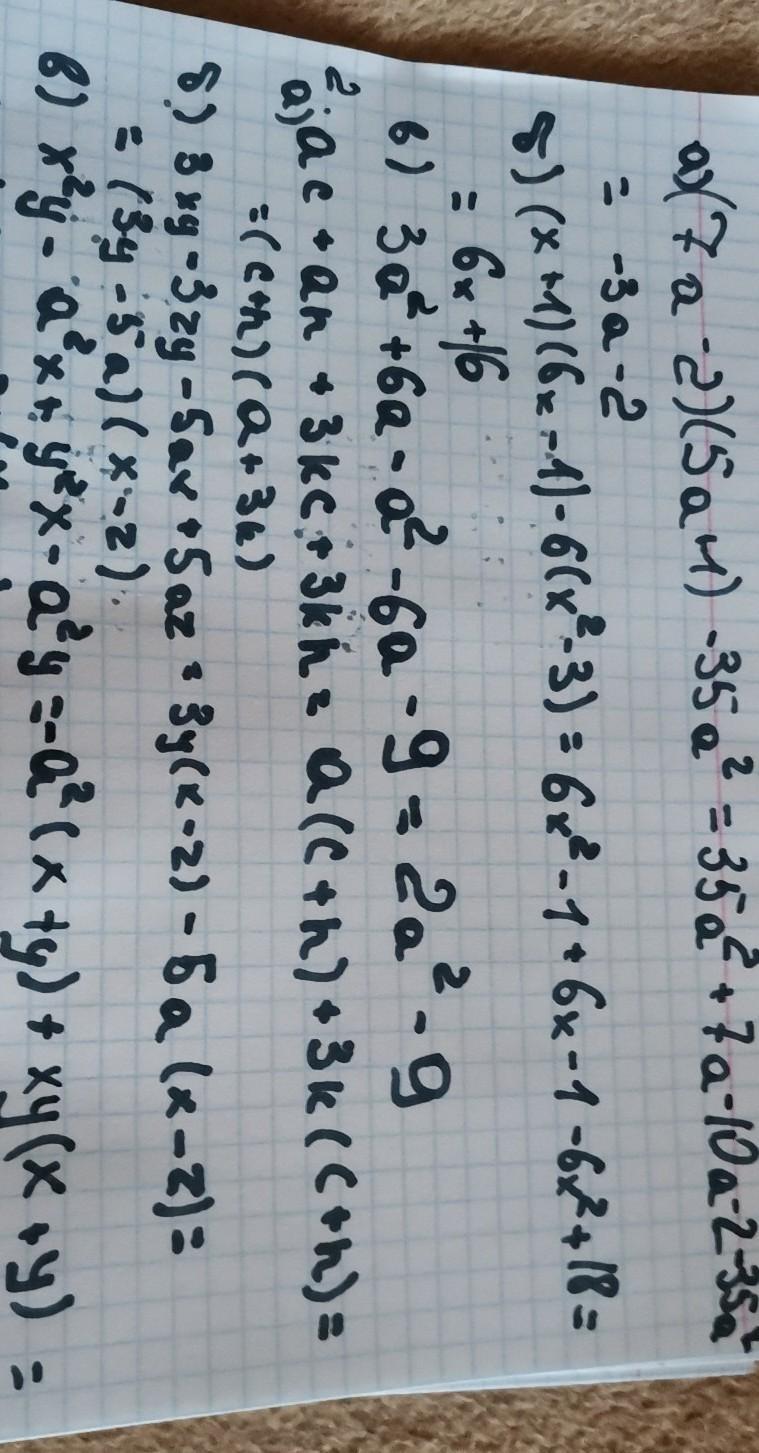 а) (7a-2)(5a+1) -35a² = 35a² + 7a-10a-2-35a²
= -3a-2
б) (x+1)(6x-1)-6(x²-3) = 6x²-1+6x-1-6x²+18=
= 6x+16
в) 3a²+6a-a²-6a-9 = 2a²-9
2.
а) ac + an + 3kc+3kn = a(c+n)+3k(c+n)=
=(c+n)(a+3k)
б) 3xy-3zy-5ax+5az = 3y(x-z)-5a(x-z)=
= (3y-5a)(x-z)
в) x²y-a²x+y²x-a²y=-a²(x+y)+xy(x+y) =